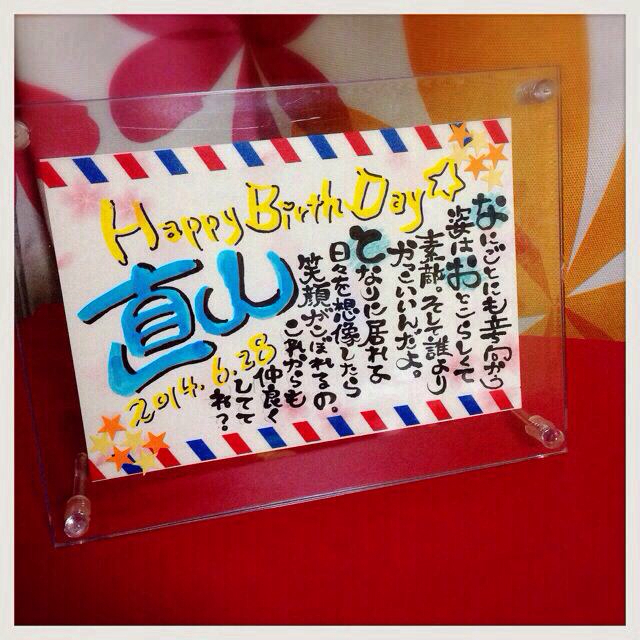 Happy Birth Day☆
直山
2014.6.28
なにごとにも立ち向かう
姿はおとこらしくて
素敵 そして誰より
かっこいいんだよ。
となりに居れる
日々を想像したら
笑顔がこぼれるの。
これからも
仲良く
してて
ね?